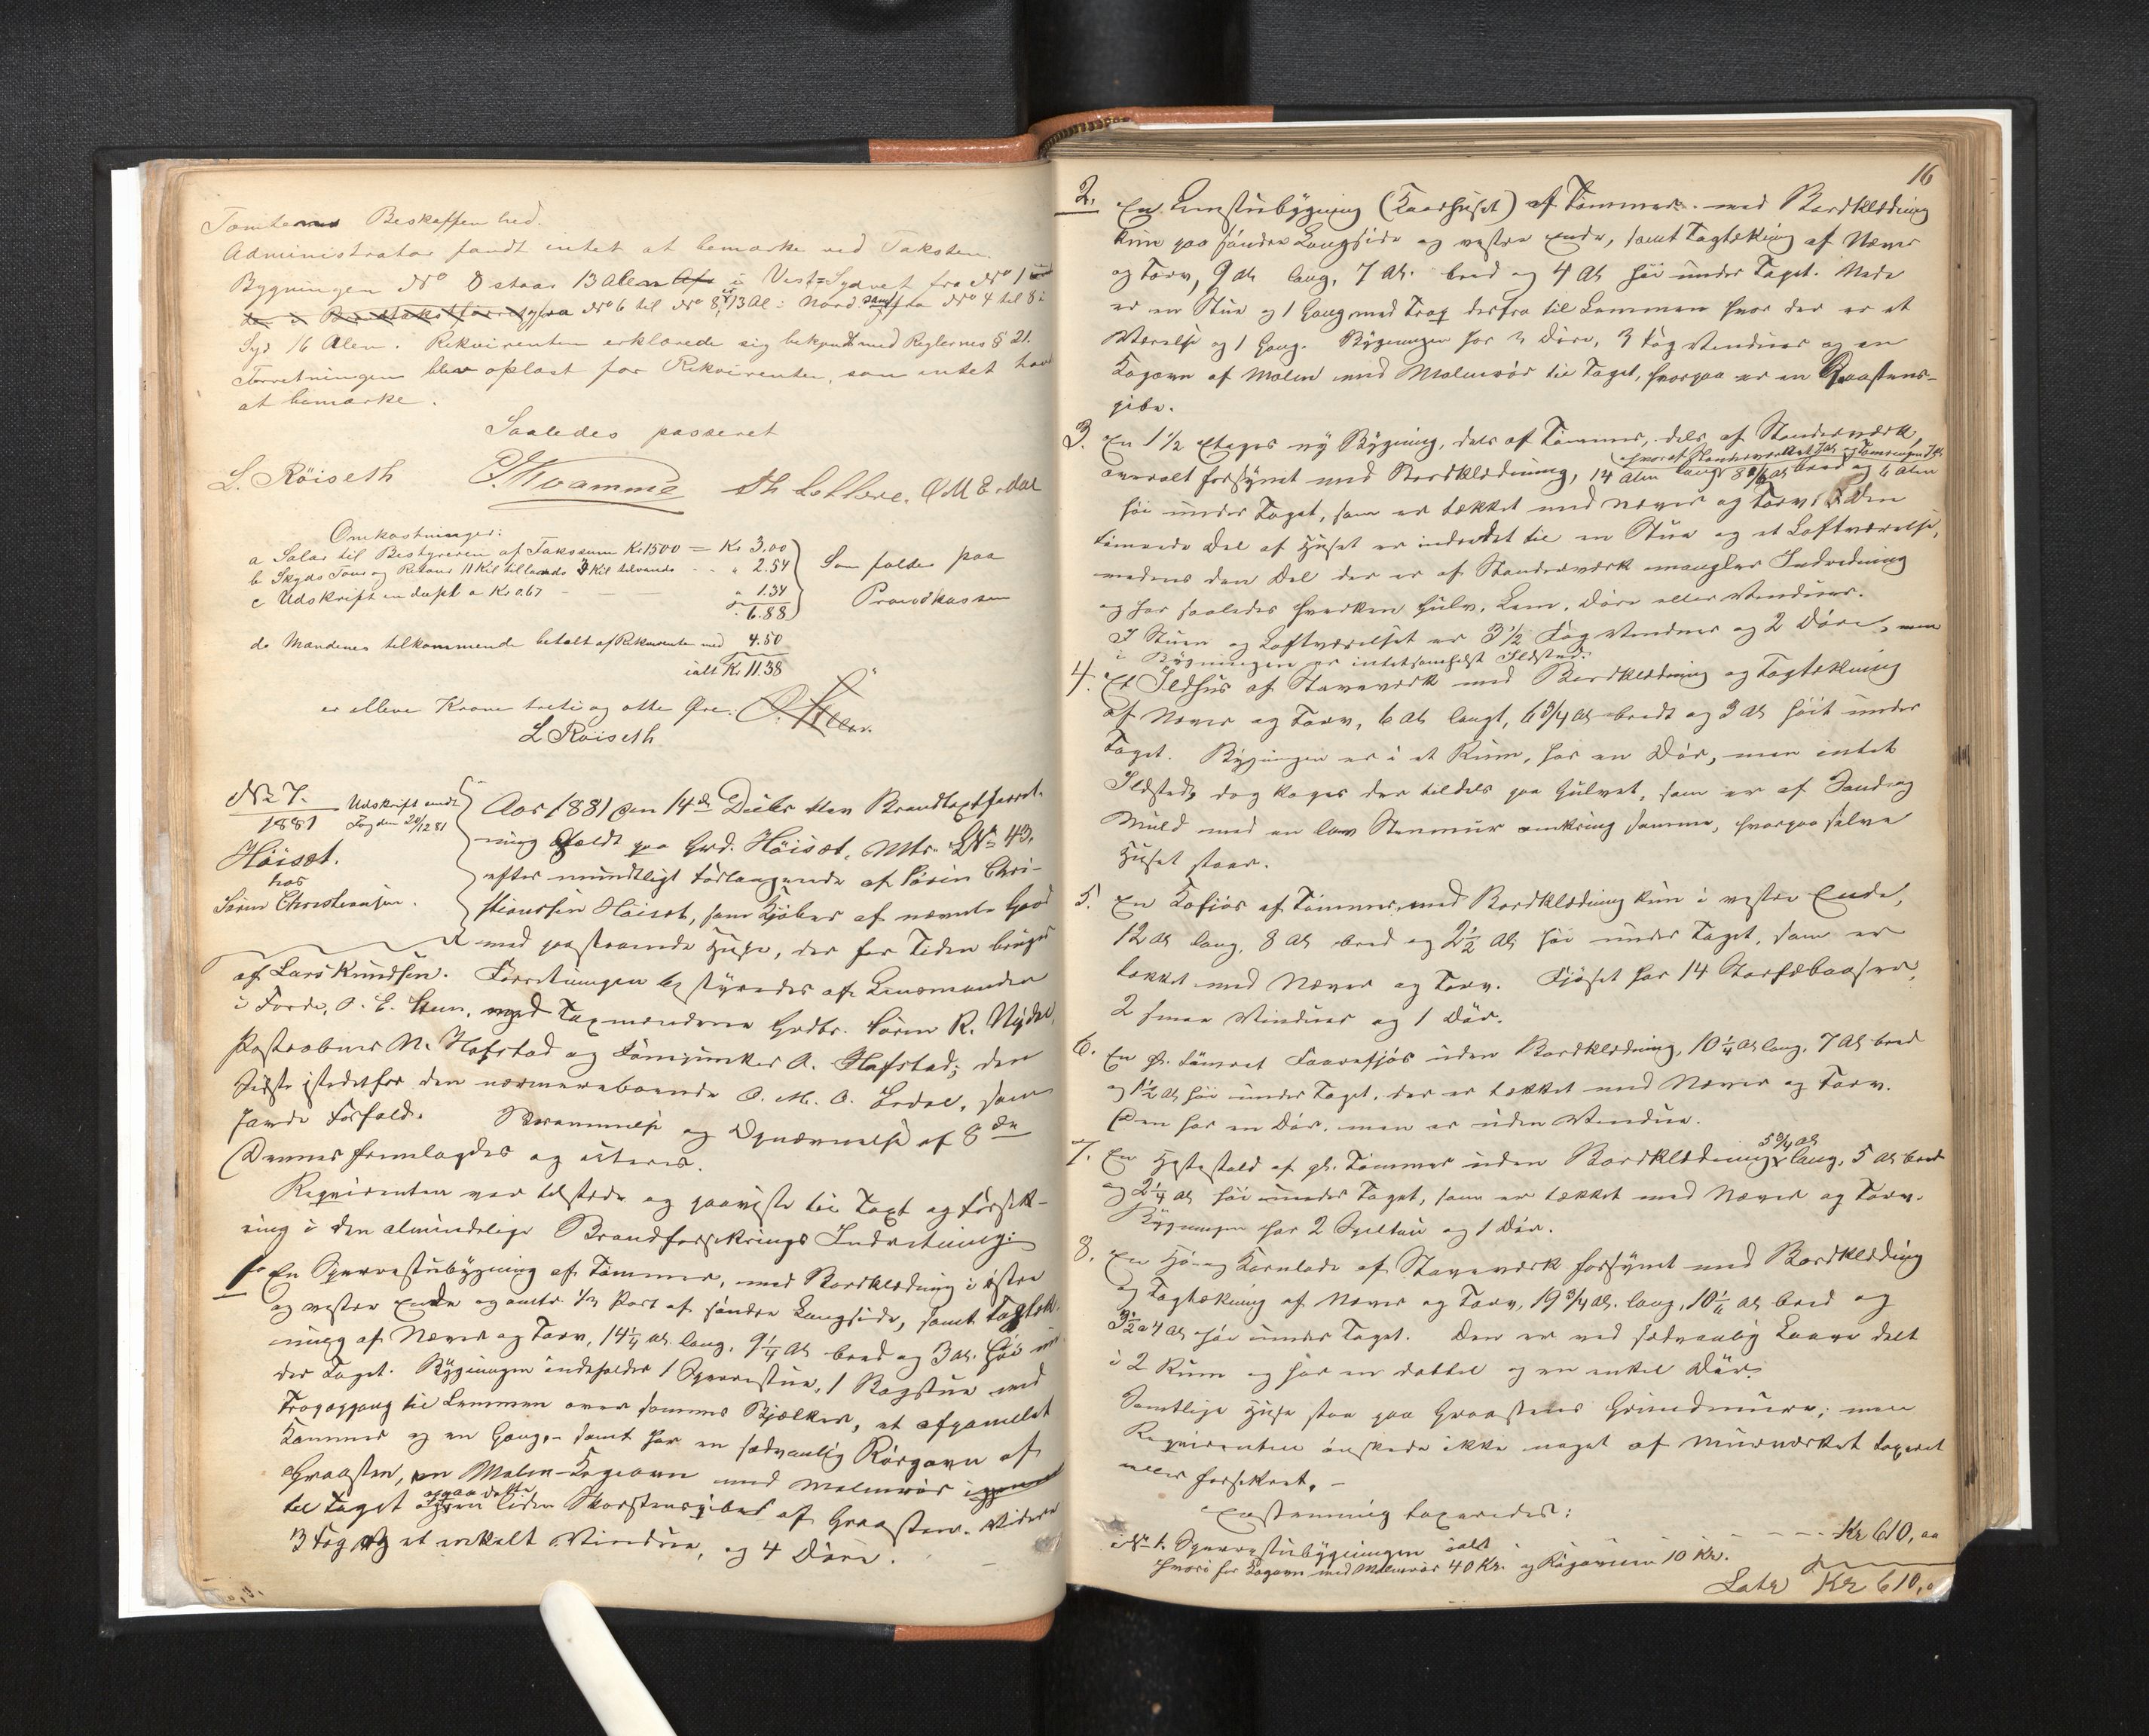 Tomternes Beskaffenhed.
Administrator fandt intet at bemærke ved Taksten.
Bygningen No 8 staar 13 Alen i Vest-Sydvest fra No 1
fra No 6 til No 8, er 13 Al i Nord samt fra No 4 til 8 i
Syd 16 Alen. Rekvirenten erklærede sig bekjendt med Reglernes § 21.
Forretningen blev oplæst for Rekvirenten, som intet havde
at bemærke.
Saaledes passeret
L. Röiseth
Omkostninger:
a Salær til Bestyreren af Taksum Kr 1500 = Kr 3.00
b Skyds Tour og Retour 11 Kil tillands 3 Kil tilvands " 2.54
c Udskrift en dupl. a Kr 0.67 " 1.34
6.88
Som falder paa
Brandkassen
d Mændenes tilkommende betalt af Rekvirenten med 4.50
ialt Kr 11.38
er elleve Kroner treti og otte Øre.
L Röiseth
No 7.
1881
Udskrift sendt
Fogden 20/12 81
Höiset.
hos
Sören Christensen.
Aar 1881 den 14de Decbr blev Brandtaxtforret-
ning afholdt paa Grd. Höiset, Mtr. No 43,
efter mundtligt Forlangende af Sören Chri-
stiansen Höiset, som Kjöber af nævnte Gaard
med paastaaende Huse, der for Tiden bruges
af Lars Knudsen. Forretningen bestyredes af Lensmanden
i Förde, med Taxmændene Grdbr. Sören R. Nydal,
Postaabner N. Hafstad og A. Hafstad; den
sidste istedetfor den nærmereboende O. M. O. Erdal, som
havde Forfald. Berammelse og Opnævnelse af 8de
Dennes fremlagdes og citeres.
Requirenten var tilstede og paaviste til Taxt og Forsik-
ring i den almindelige Brandforsikrings Indretning:
1o En Sperrestubygning af Tömmer, med Bordklædning i östre
og vestre Ende og omtr. 1/3 Part af söndre Langside, samt Tagtæk-
ning af Næver og Torv, 14 1/4 al. lang, 9 1/4 al bred og 3 al. höi un-
der Taget. Bygningen indeholder 1 Sperrestue, 1 Røgstue med
Trapopgang til Lemmen over sammes Bjælker, et afpanelet
Kammer og en Gang, samt har en sædvanlig Rørgovn af
Graasten, en Malm-Kogeovn med Malmrör
til Taget og paa dette en liden Skorstenspibe af Graasten. Videre
3 Fag og et enkelt Vindue, og 4 Döre.
16
2. En Lemstubygning (Kaarhuset) af Tömmer med Bordklædning
kun paa söndre Langside og vestre Ende, samt Tagtækning af Næver
og Torv, 9 al lang, 7 al. bred og 4 al höi under Taget. Nede
er en Stue og 1 Gang med Trap derfra til Lemmen hvor der er et
Værelse og 1 Gang. Bygningen har 3 Döre, 3 Fag Vinduer og en
Kogovn af Malm med Malmrör til Taget, hvorpaa er en Graastens-
pibe.
3. En 1 1/2 Etages ny Bygning, dels af Tömmer, dels af Standerværk,
overalt forsynet med Bordklædning, 14 Alen lang, 8 1/2 al bred og 6 Alen
höi under Taget, som er tækket med Næver og Torv. Den
tömrede Del af Huset er indredet til en Stue og et Loftværelse,
medens den Del der er af Standerværk mangler Indredning
og har saaledes hverken Gulv, Lem, Döre eller Vinduer.
I Stuen og Loftværelset er 3 1/2 Fag Vinduer og 2 Döre, men
i Bygningen er intetsomhelst Ildsted.
4. Et Ildhus af Staveverk med Bordklædning og Tagtækning
af Næver og Torv, 6 al langt, 6 3/4 al bredt og 3 al höit under
Taget. Bygningen er i et Rum, har en Dör, men intet
Ildsted, dog koges der tildels paa Gulvet, som er af Sand og
Muld med en lav Stenmur omkring samme, hvorpaa selve
Huset staar.
5. En Kofjös af Tömmer, med Bordklædning kun i vestre Ende,
12 al lang, 8 al bred og 2 1/2 al höi under Taget, som er
tækket med Næver og Torv. Fjöset har 14 Storfebaaser,
2 smaa Vinduer og 1 Dör.
6. En gl. tömret Faarefjös uden Bordklædning, 10 1/4 al lang, 7 al bred
og 1 1/2 al höi under Taget, der er tækket med Næver og Torv.
Den har en Dör, men er uden Vindue.
7. En Hestestald af gl. Tömmer uden Bordklædning 5 3/4 al lang, 5 al bred
og 2 1/4 al höi under Taget, som er tækket med Næver og Torv.
Bygningen har 2 Spiltau og 1 Dör.
8. En Hö- og Kornlade af Staveværk forsynet med Bordklædning
og Tagtækning af Næver og Torv, 19 3/4 al. lang, 10 1/4 al bred og
3 1/2 a 4 al höi under Taget. Den er ved sædvanlig Laave delt
i 2 Rum og har en dobbel og en enkel Dör.
Samtlige Huse staa paa Graastens Grundmure; men
Requirenten önskede ikke noget af Murværket taxeret
eller forsikret. –
Enstemmig taxeredes:
No 1. Sperrestubygningen ialt Kr 610, 00
hvori for Kogovn med Malmrör 40 Kr. og Rögovnen 10 Kr.
Latr Kr 610,0